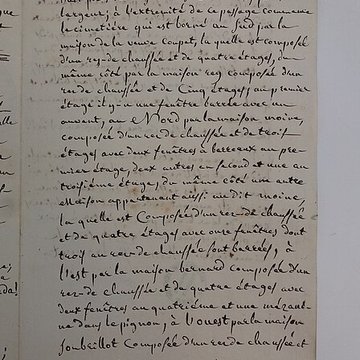 largeur; à l'extremité de ce passage commence
le cimetière qui est borné au sud par la
maison de la veuve Coupet, la quelle est composée
d'un rez-de chaussée et de quatre étages, du
même côté par la maison rey composée d'un
rez-de chaussée et de Cinq étages; au premier
étage il y-a une fenêtre barrée avec un
auvant; au Nord par la maison moine,
composée d'un rez de chaussée et de trois
étages avec deux fenêtres à barreaux au pre-
mier étage, deux autres au second et une au
troisième étage; du même côté une autre
Maison appartenant aussi au dit moine,
la quelle est Composée d'un rez-de chaussée
et de quatre étages avec onze fenêtres dont
trois au rez-de chaussée sont barrées; à
l'est par la maison bernard composée d'un
rez-de chaussée et de quatre étages avec
deux fenêtres au quatrième et une
dans le pignon; à l'ouest par la maison
Composée d'un rez de chaussée et
que